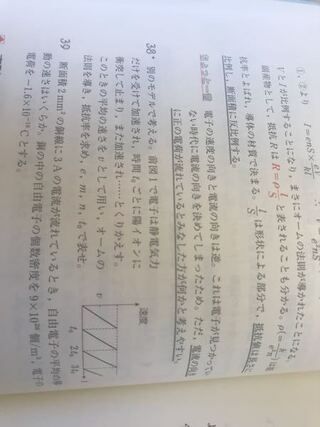 ①, ②より I=enS×
VとIが比例することになり、まさにオームの法則が導かれたことになる。
副産物として、抵抗RはR=ρl/Sと表されることも分かる。ρは
抗率とよばれ、導体の材質で決まる。l/Sは形状による部分で、抵抗値は長さに
比例し、断面積に反比例する。
電子の速度の向きと電流の向きは逆。これは電子が見つかってい
ない時代に電流の向きを決めてしまったため。ただ、電流の向き
に正の電荷が流れているとみなした方が何かと考えやすい。
38* 別のモデルで考える。前図で電子は静電気力
だけを受けて加速され、時間t₀ごとに陽イオンに
衝突して止まり、また加速され……とくりかえす。
このときの平均の速さをvとして用い、オームの
法則を導き、抵抗率を求め、e, m, n, t₀で表せ。
速度
v
t₀ 2t₀ 3t₀
39 断面積2mm²の銅線に3Aの電流が流れているとき、自由電子の平均の移
動の速さはいくらか。銅の中の自由電子の個数密度を9×10²⁸個/m³, 電子の
電荷を−1.6×10⁻¹⁹Cとする。